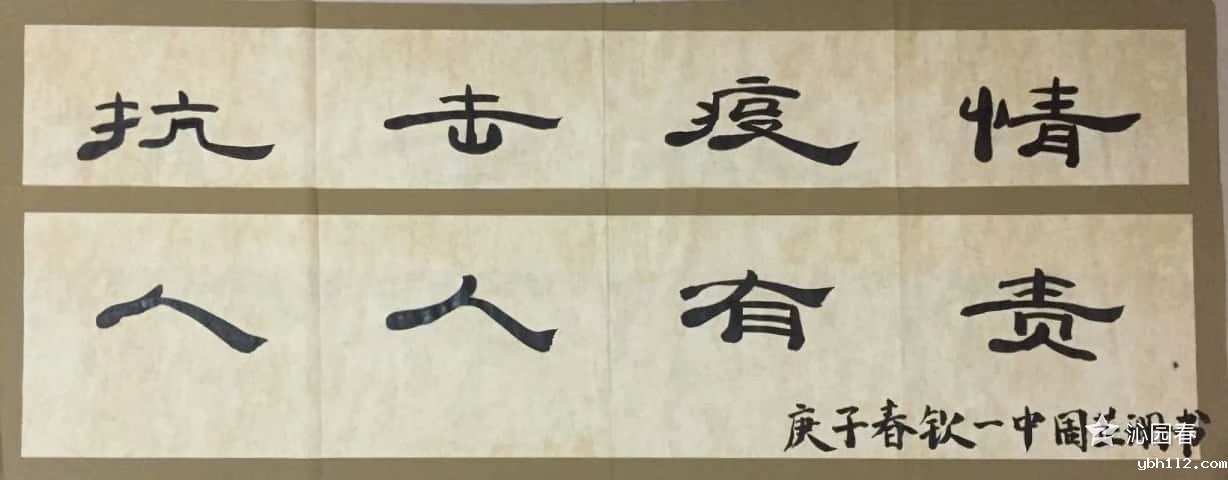 抗击疫情
人人有责
庚子春钦一中周兰润书
沁园春
ybh112.com